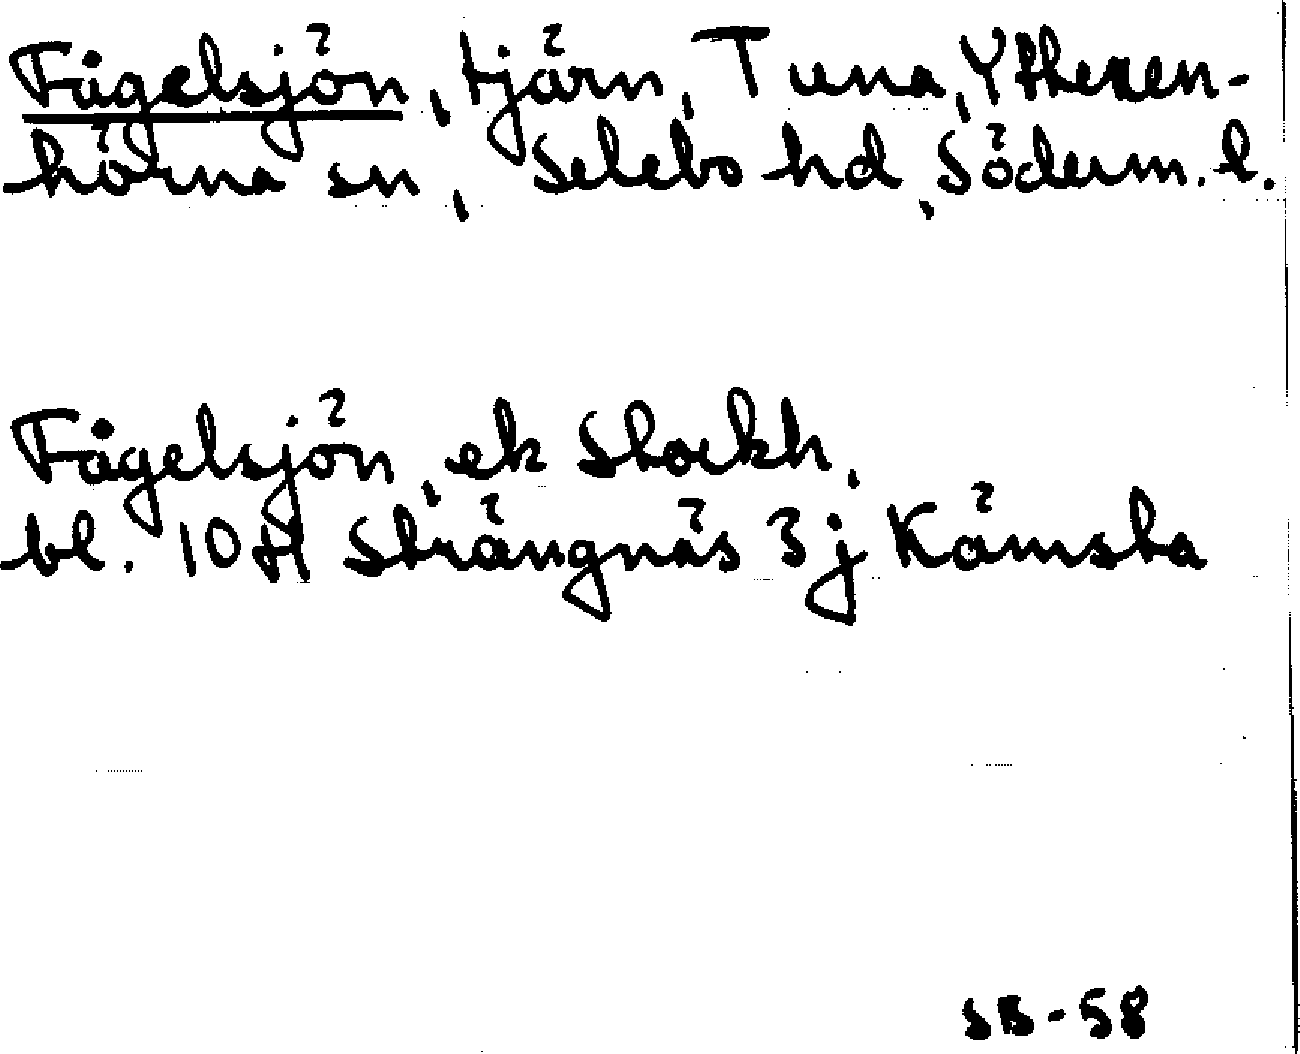 Fågelsjön, tjärn, Tuna, Ytterenhörna sn, Selebo hd, Söderm. l.
Fågelsjön, ek Stockh,
bl. 10 H Strängnäs 3 j Kämsta
SB-58